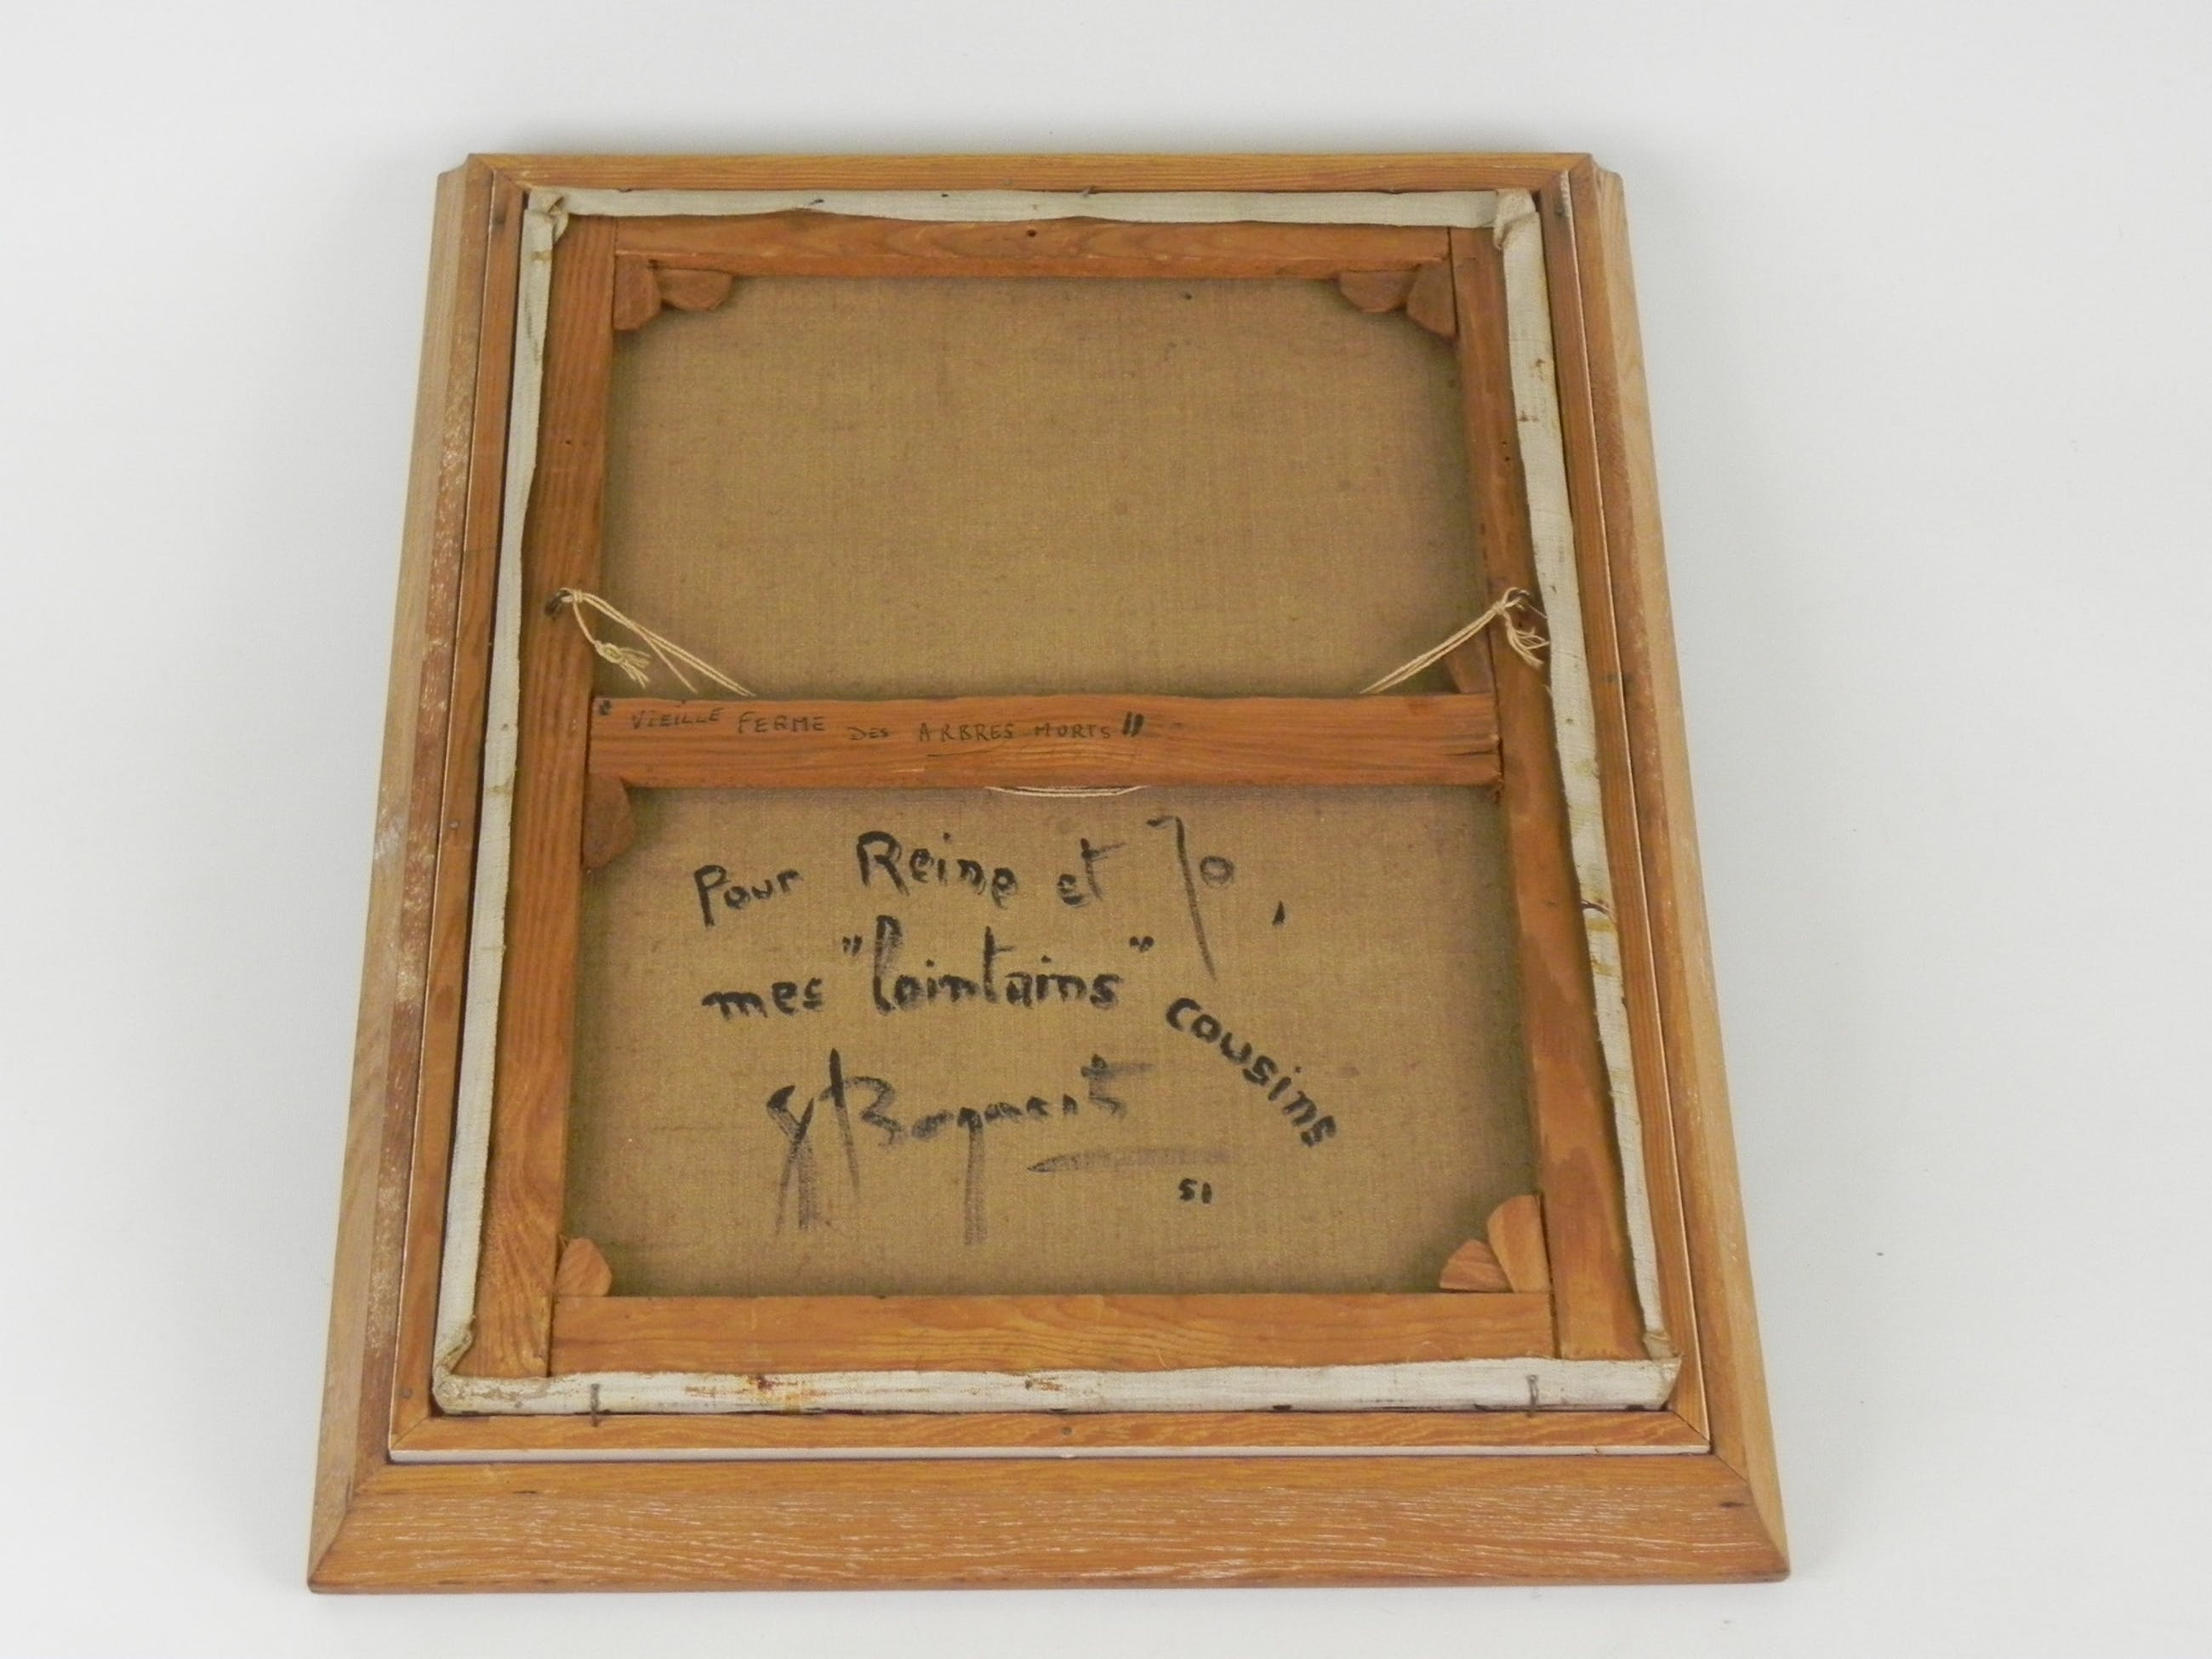 " VIEILLE FERME DES ARBRES MORTS "
Pour Reine et Jo,
mes "lointains" cousins
51